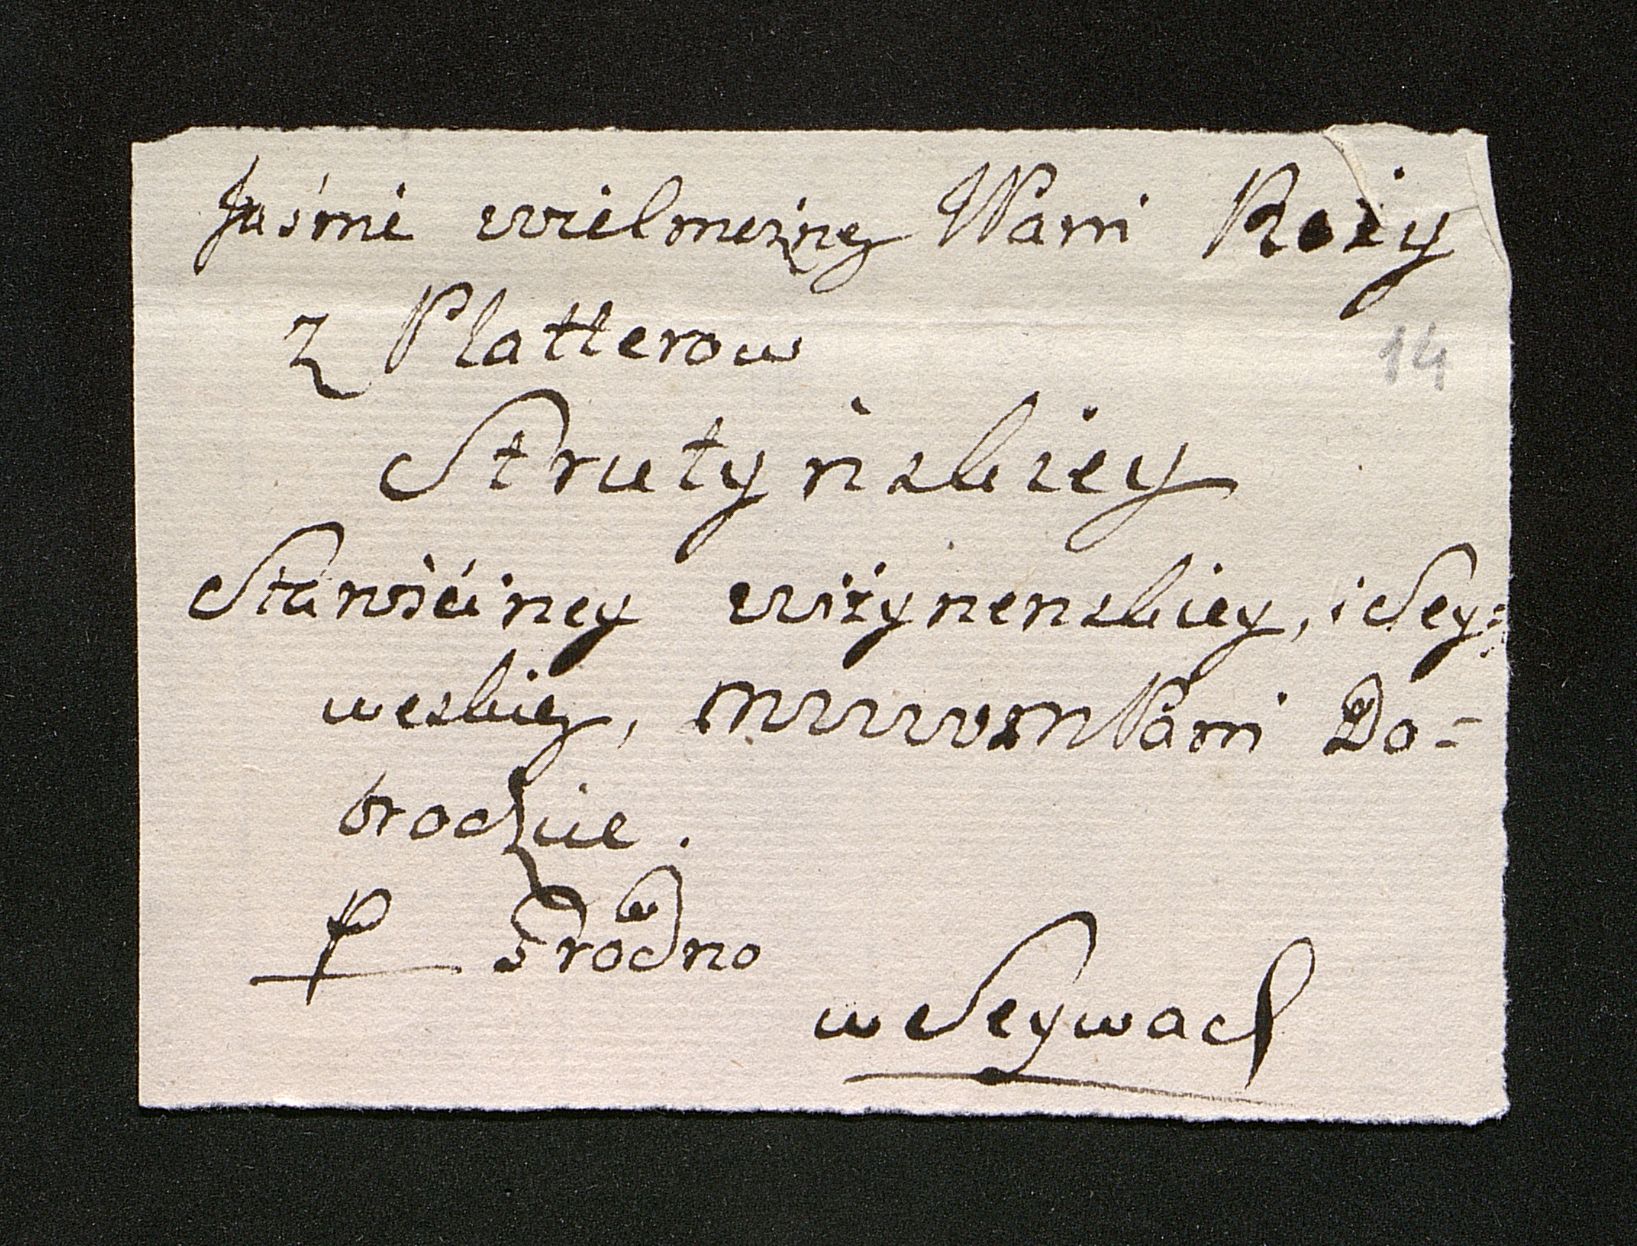 Jaśnie wielmożney Wani Roży
z Platterow
14
Strutyńskiey
Starościney wiżynenskiey, i Sey:
weskiey, Pani Do-
brodzice.
P Grodno
w Seywach